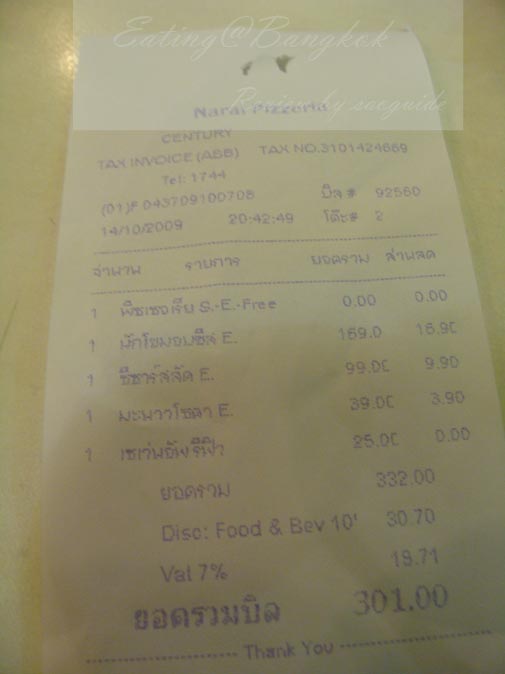 Eating@Bangkok
Review by saoguide
Narai Pizzeria
CENTURY
TAX INVOICE (ABB) TAX NO.3101424669
Tel: 1744
(01)P 043709100708 บิล # 92560
14/10/2009 20:42:49 โต๊ะ# 2
จำนวน รายการ ยอดรวม ส่วนลด
1 พิซเซอเรีย S.-E.-Free 0.00 0.00
1 ผักโขมอบชีส E. 169.0 16.90
1 ซีซาร์สลัด E. 99.00 9.90
1 มะนาวโซดา E. 39.00 3.90
1 เซเว่นอัพรีฟิว 25.00 0.00
ยอดรวม 332.00
Disc: Food & Bev 10' 30.70
Vat 7% 19.71
ยอดรวมบิล 301.00
Thank You